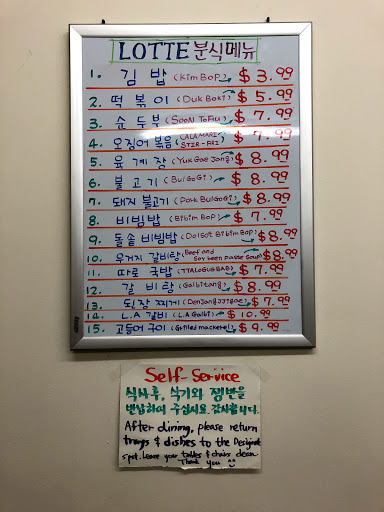 LOTTE 분식메뉴
1. 김밥 (Kim Bop) $3.99
2. 떡볶이 (Duk Boki) $5.99
3. 순두부 (Soon Tofu) $7.99
4. 오징어볶음 (CALAMARI STIR-FRI) $7.99
5. 육계장 (Yuk Gae Jang) $8.99
6. 불고기 (BulGoGi) $8.99
7. 돼지 불고기 (Pork BulGoGi) $8.99
8. 비빔밥 (Bibim Bop) $7.99
9. 돌솥 비빔밥 (Dolsot Bibim Bop) $8.99
10. 우거지 갈비탕 (Beef and Soy bean paste Soup) $8.99
11. 따로 국밥 (TTALOGUGBAB) $7.99
12. 갈비탕 (Galbitang) $8.99
13. 된장찌게 (DenJangJJiGae) $7.99
14. L.A 갈비 (L.A Galbi) $10.99
15. 고등어 구이 (Grilled mackerel) $9.99
Self-Service
식사후, 식기와 쟁반을
반납하여 주십시요. 감사합니다.
After dining, please return
trays & dishes to the Designate
spot. Leave your tables & chairs clean.
Thank you